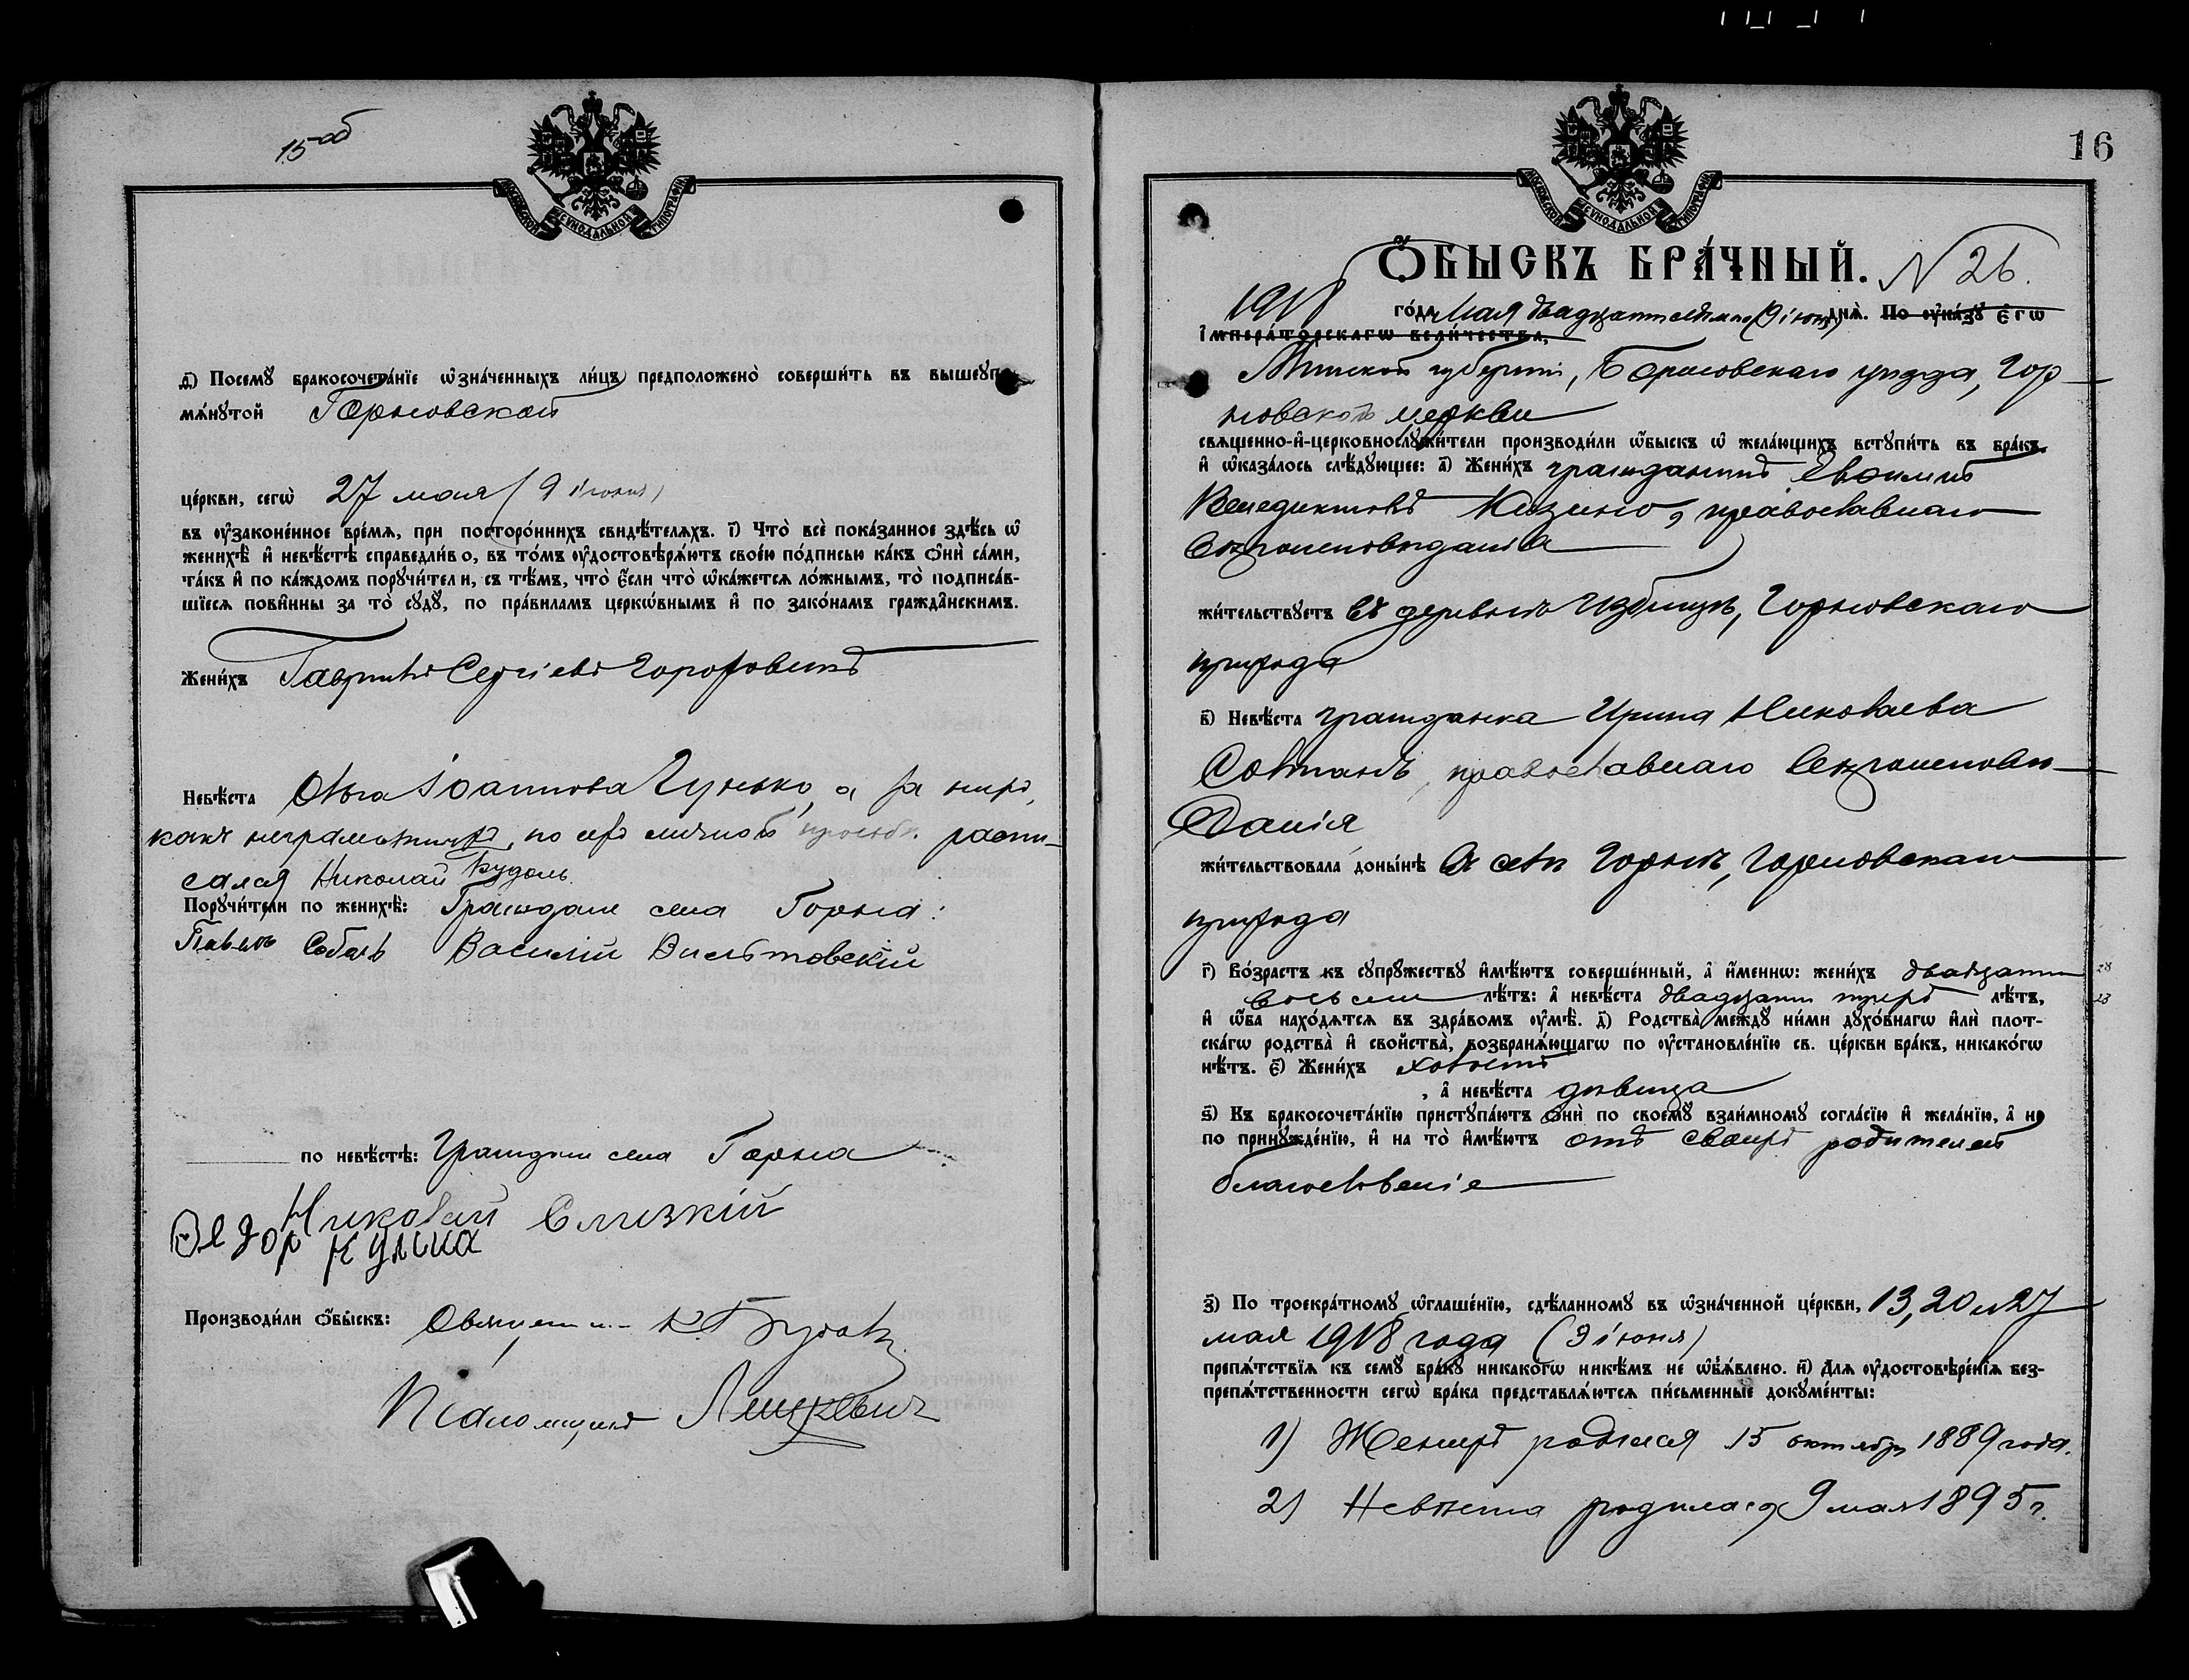 15 об
МОСКОВСКОЙ СѴНОДАЛЬНОЙ ТИПОГРАФІИ
д҃) Посемꙋ̀ бракосочета́нїе ѡ҆зна́ченныхъ ли́цъ предположено̀ соверши́ть въ вышеꙋпо-
мѧ́нꙋтой Горновской
це́ркви, сегѡ̀ 27 мая (9 іюня)
въ ᲂу҆зако́ненное вре́мѧ, при посторо́ннихъ свидѣ́телѧхъ. і҃) Что̀ всѐ пока́занное здѣ́сь ѡ҆
женихѣ̀ и҆ невѣ́стѣ справедли́во, въ то́мъ ᲂу҆достовѣрѧ́ютъ свое́ю по́дписью ка́къ ѻ҆нѝ са́ми,
та́къ и҆ по ка́ждомъ порꙋчи́тели, съ тѣ́мъ, что̀ є҆́сли что̀ ѡ҆ка́жетсѧ ло́жнымъ, то̀ подписа́в-
шїесѧ пови́нны за то̀ сꙋдꙋ̀, по пра́виламъ церко́внымъ и҆ по зако́намъ гражда́нскимъ.
Жени́хъ Гавріилъ Сергіевъ
Невѣ́ста Ольга Іоаннова Гунько, а за нихъ,
какъ неграмотныхъ, по ихъ личной просьбѣ распи-
сался Николай Будаль
Порꙋчи́тели по женихѣ̀: Граждане села Горна:
Павелъ Соболь Василій
по невѣ́стѣ: Граждане села Горна
Николай Слизкій
Ѳедор Кулика
Производи́ли ѻ҆́быскъ: Священн. К.
Псаломщикъ Лешкевич
16
МОСКОВСКОЙ СѴНОДАЛЬНОЙ ТИПОГРАФІИ
Ѻ҆́БЫСКЪ БРА́ЧНЫЙ. N 26.
1918 го́да Мая двадцать седьмого (9 іюня) днѧ̀. По ᲂу҆ка́зꙋ є҆гѡ̀
І҆мпера́торскагѡ вели́чества,
Минской губерніи, Борисовскаго уѣзда, Гор-
новской церкви
свѧще́нно-и҆-церковнослꙋжи́тели производи́ли ѻ҆́быскъ ѡ҆ жела́ющихъ встꙋпи́ть въ бра́къ,
и҆ ѡ҆каза́лось слѣ́дꙋющее: а҃) Жени́хъ гражданинъ Евфимій
Венедиктовъ Козинко, православнаго
вѣроисповѣданія
жи́тельствꙋетъ въ деревнѣ Избище, Горновскаго
прихода
в҃) Невѣ́ста гражданка Ирина Николаева
православнаго вѣроисповѣ-
данія
жи́тельствовала доны́нѣ въ селѣ Горнѣ, Горновскаго
прихода
г҃) Во́зрастъ къ сꙋпрꙋ́жествꙋ и҆мѣ́ютъ соверше́нный, а҆ и҆́меннѡ: жени́хъ двадцати 28
восьми лѣ́тъ: а҆ невѣ́ста двадцати трехъ лѣ́тъ, 23
и҆ ѻ҆́ба нахо́дѧтсѧ въ здра́вомъ ᲂу҆мѣ̀. д҃) Родства̀ междꙋ̀ ни́ми дꙋхо́внагѡ и҆лѝ плот-
ска́гѡ родства̀ и҆ сво́йства̀, возбранѧ́ющагѡ по ᲂу҆становле́нїю св. це́ркви бра́къ, никако́гѡ
нѣ́тъ. є҃) Жени́хъ холостъ
, а҆ невѣ́ста дѣвица
ѕ҃) Къ бракосочета́нїю пристꙋпа́ютъ ѻ҆нѝ по своемꙋ̀ взаи́мномꙋ согла́сїю и҆ жела́нїю, а҆ не
по принꙋжде́нїю, и҆ на то̀ и҆мѣ́ютъ отъ своихъ родителей
благословеніе
з҃) По троекра́тномꙋ ѡ҆глаше́нїю, сдѣ́ланномꙋ въ ѡ҆зна́ченной це́ркви, 13, 20 и 27
мая 1918 года (9 іюня)
препѧ́тствїѧ къ семꙋ̀ бра́кꙋ никако́гѡ никѣ́мъ не ѡ҆б̾ѧ́влено. и҃) Длѧ ᲂу҆достовѣре́нїѧ без-
препѧ́тственности сегѡ̀ бра́ка представлѧ́ютсѧ пи́сьменные докꙋме́нты:
1) Женихъ родился 15 октября 1889 года.
2) Невѣста родилась 9 мая 1895 г.